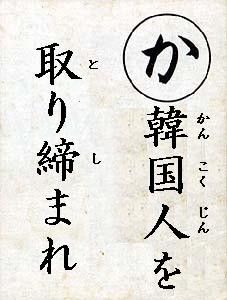 か
韓国人を
かんこくじん
取り締まれ
と
し